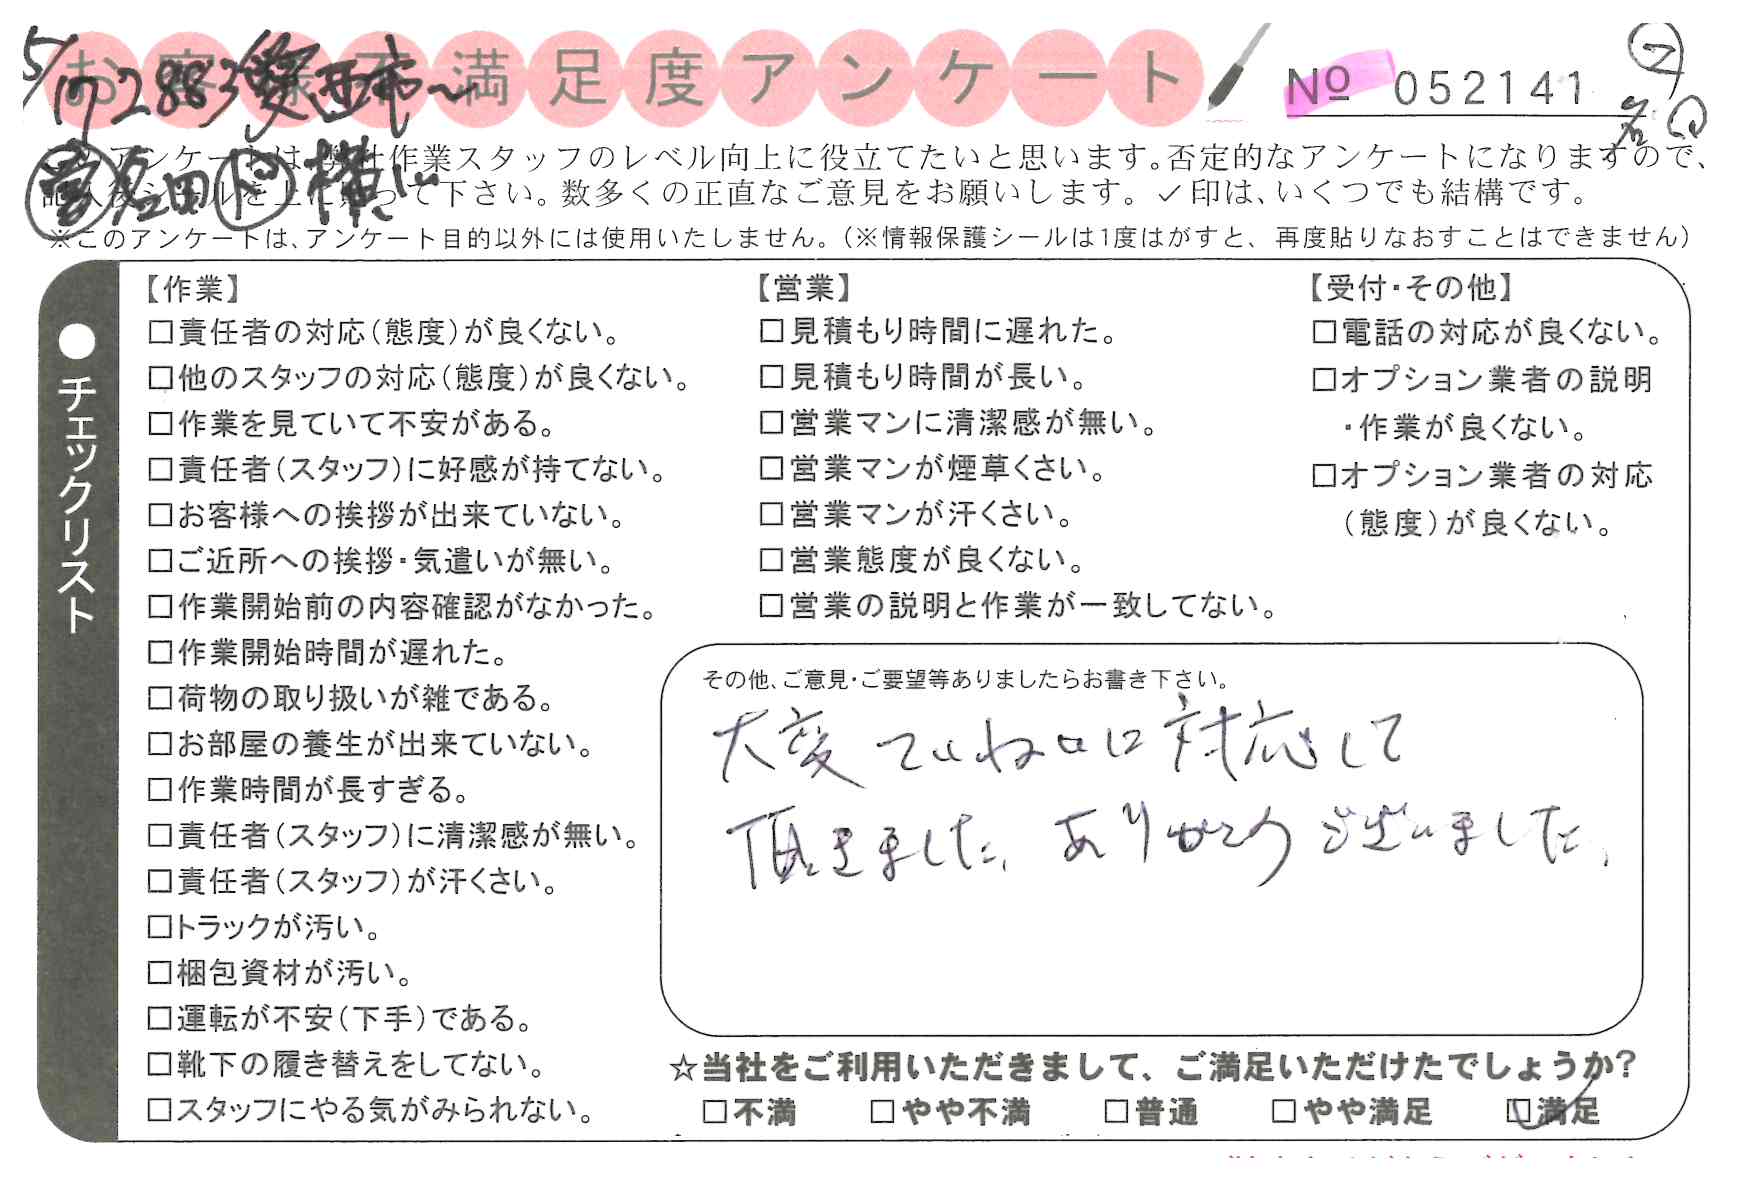 お客様不満足度アンケート
№ 052141
5/17 2883 愛西市〜
このアンケートは、弊社作業スタッフのレベル向上に役立てたいと思います。否定的なアンケートになりますので、
記入後シールを上に貼って下さい。数多くの正直なご意見をお願いします。✓印は、いくつでも結構です。
※このアンケートは、アンケート目的以外には使用いたしません。(※情報保護シールは1度はがすと、再度貼りなおすことはできません)
●チェックリスト
【作業】
□責任者の対応(態度)が良くない。
□他のスタッフの対応(態度)が良くない。
□作業を見ていて不安がある。
□責任者(スタッフ)に好感が持てない。
□お客様への挨拶が出来ていない。
□ご近所への挨拶・気遣いが無い。
□作業開始前の内容確認がなかった。
□作業開始時間が遅れた。
□荷物の取り扱いが雑である。
□お部屋の養生が出来ていない。
□作業時間が長すぎる。
□責任者(スタッフ)に清潔感が無い。
□責任者(スタッフ)が汗くさい。
□トラックが汚い。
□梱包資材が汚い。
□運転が不安(下手)である。
□靴下の履き替えをしてない。
□スタッフにやる気がみられない。
【営業】
□見積もり時間に遅れた。
□見積もり時間が長い。
□営業マンに清潔感が無い。
□営業マンが煙草くさい。
□営業マンが汗くさい。
□営業態度が良くない。
□営業の説明と作業が一致してない。
【受付・その他】
□電話の対応が良くない。
□オプション業者の説明
・作業が良くない。
□オプション業者の対応
(態度)が良くない。
その他、ご意見・ご要望等ありましたらお書き下さい。
大変ていねいに対応して
頂きました、ありがとうございました、
☆当社をご利用いただきまして、ご満足いただけたでしょうか?
□不満 □やや不満 □普通 □やや満足 ☑満足